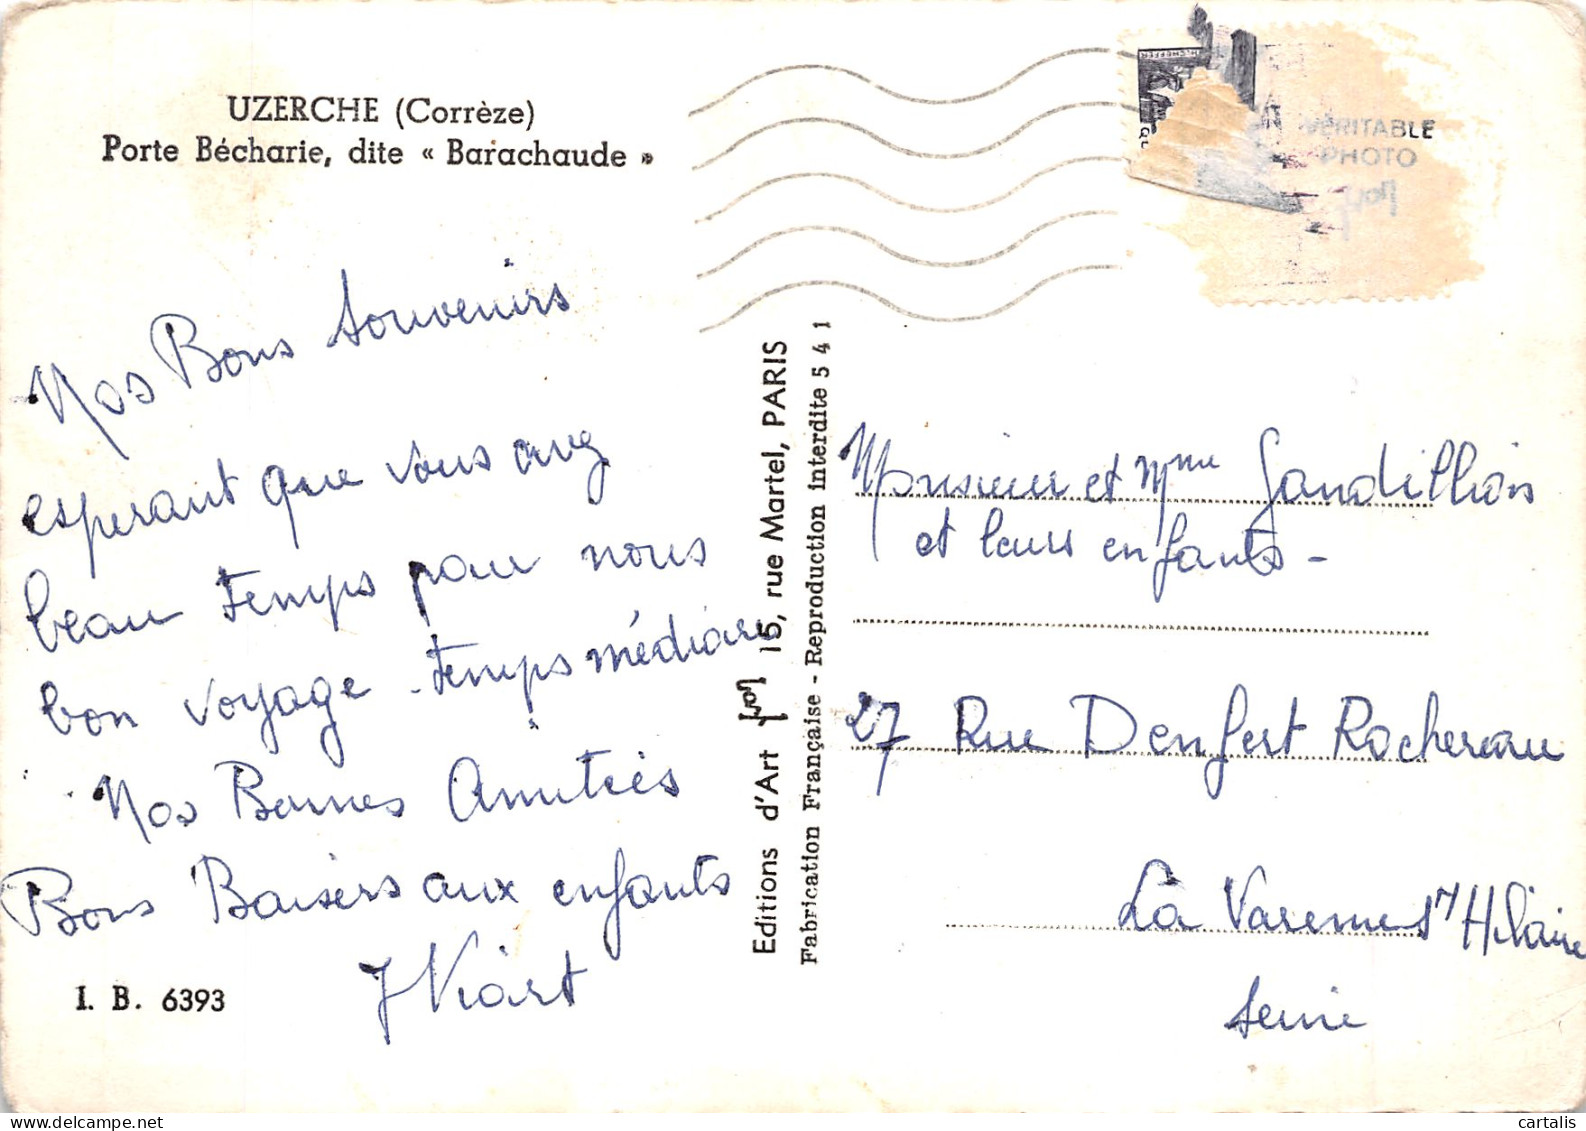 UZERCHE (Corrèze)
Porte Bécharie, dite « Barachaude »
Nos Bons Souvenirs
esperant que vous avez
beau temps pour nous
bon voyage - temps médiocre
Nos Bonnes Amitiés
Bons Baisers aux enfants
J Viart
I. B. 6393
Editions d'Art 15, rue Martel, PARIS
Fabrication Française - Reproduction interdite 541
VÉRITABLE
PHOTO
Monsieur et Mme Gandillhois
et leurs enfants -
27 Rue Denfert Rochereau
La Varenne St Hilaire
Seine
cartalis